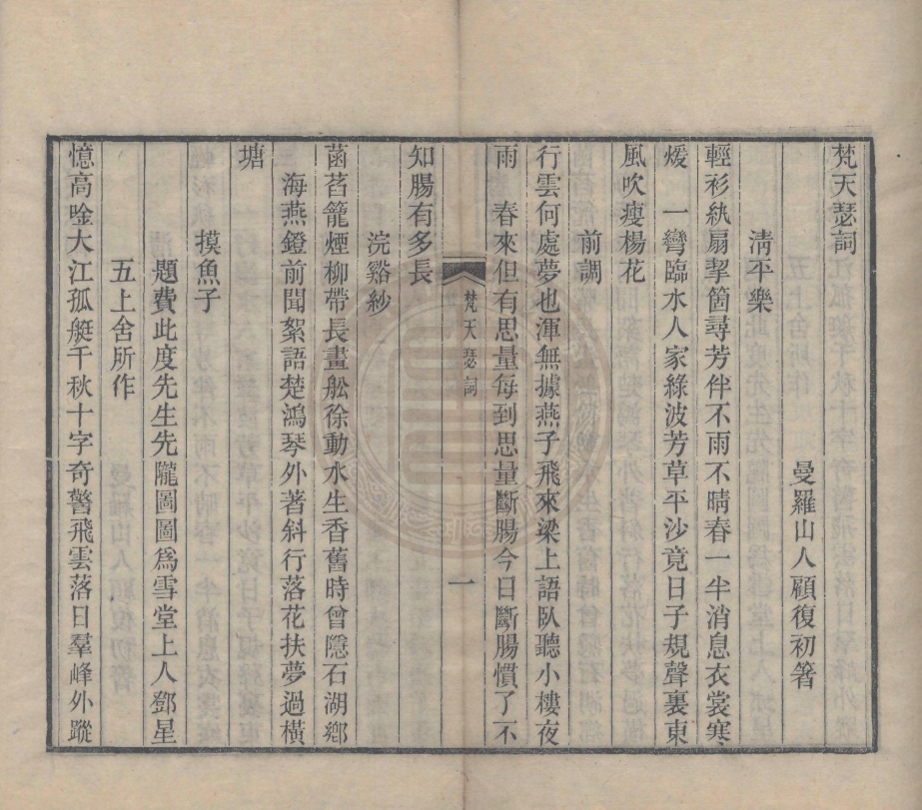 梵天瑟詞
曼羅山人顧復初箸
淸平樂
輕衫紈扇挈箇尋芳伴不雨不晴春一半消息衣裳寒
煖　一彎臨水人家綠波芳草平沙竟日子規聲裏東
風吹瘦楊花
前調
行雲何處夢也渾無據燕子飛來梁上語臥聽小樓夜
雨　春來但有思量每到思量斷腸今日斷腸慣了不
知腸有多長
梵天瑟詞
一
浣谿紗
菡萏籠煙柳帶長畫舩徐動水生香舊時曾隱石湖鄉
海燕鐙前聞絮語楚鴻琴外著斜行落花扶夢過橫
塘
摸魚子
題費此度先生先隴圖圖爲雪堂上人鄧星
五上舍所作
憶高唫大江孤艇千秋十字奇警飛雲落日羣峰外蹤